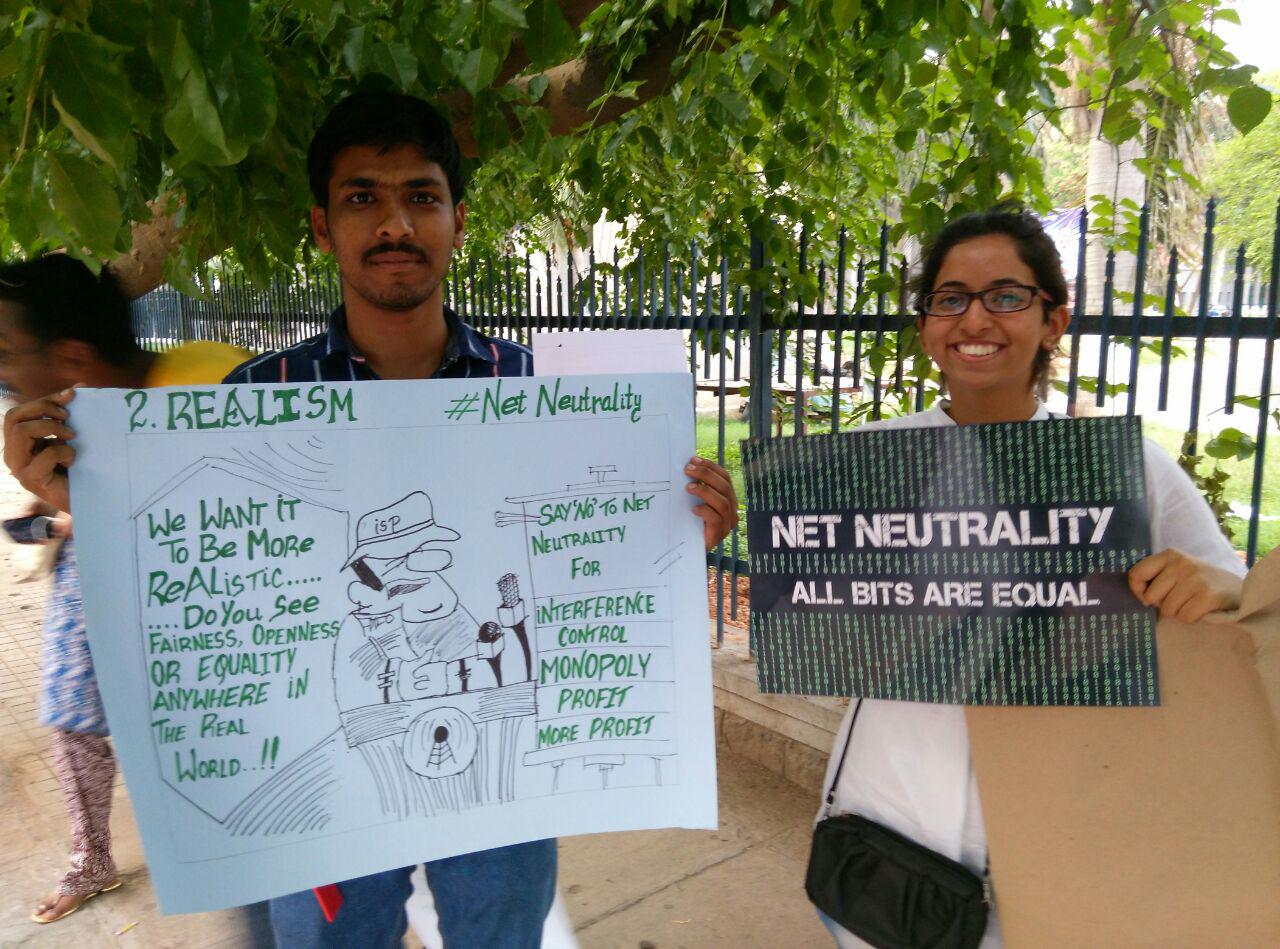 2. REALISM
#Net Neutrality
We WANT iT
To Be More
ReALisTic.....
....Do You See
FAiRNESS, OPENNESS
OR EQUALITY
ANYWHERE iN
THe ReAL
WORLD..!!
isP
SAY 'NO' To NeT
NEUTRALiTY
FoR
iNTERFERENCE
CONTROL
MONOPOLY
PROFiT
MORE PROFiT
NET NEUTRALITY
ALL BITS ARE EQUAL